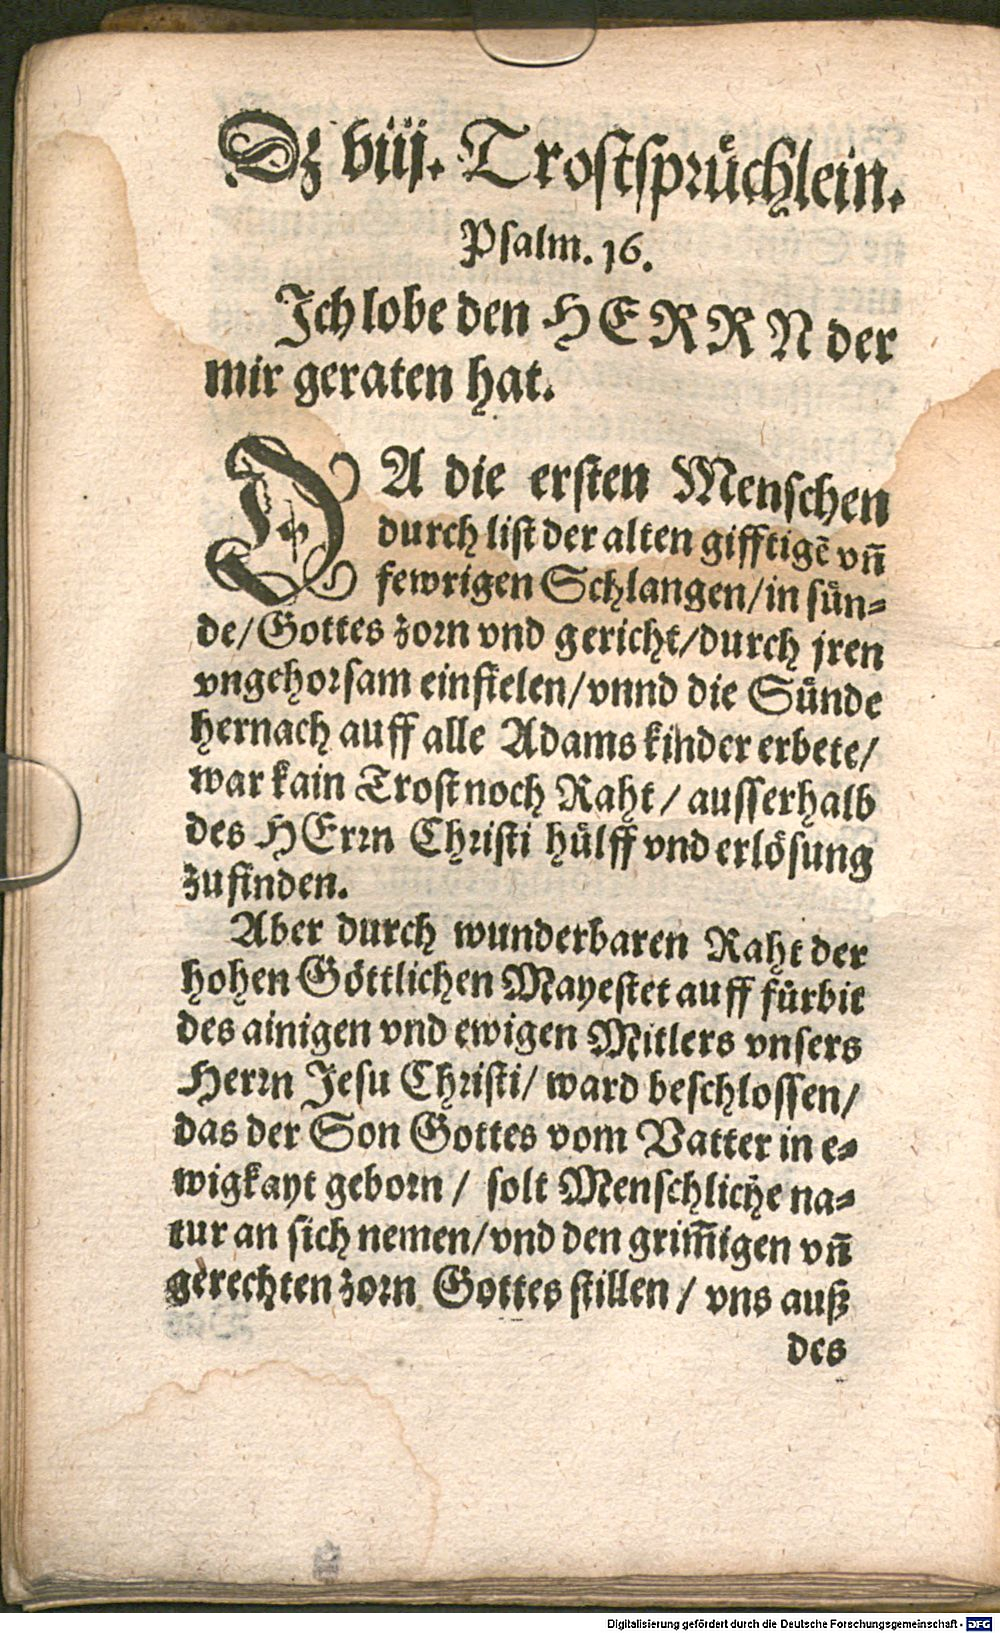 Dz viij. Trostsprüchlein.
Psalm. 16.
Ich lobe den HERRN der
mir geraten hat.
DA die ersten Menschen
durch list der alten gifftigē vn̄
fewrigen Schlangen/in sün-
de/Gottes zorn vnd gericht/durch jren
vngehorsam einfielen/vnnd die Sünde
hernach auff alle Adams kinder erbete/
war kain Trost noch Raht/ ausserhalb
des HErrn Christi hülff vnd erlösung
zufinden.
Aber durch wunderbaren Raht der
hohen Göttlichen Mayestet auff fürbit
des ainigen vnd ewigen Mitlers vnsers
Herrn Jesu Christi/ ward beschlossen/
das der Son Gottes vom Vatter in e-
wigkayt geborn/ solt Menschliche na-
tur an sich nemen/vnd den grim̄igen vn̄
gerechten zorn Gottes stillen/ vns auß
des
Digitalisierung gefördert durch die Deutsche Forschungsgemeinschaft - DFG